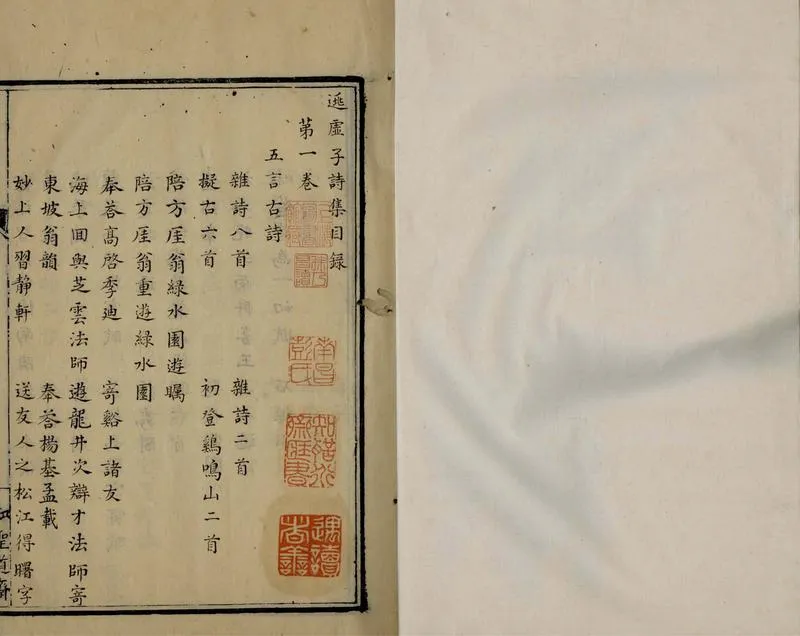 逃虛子詩集目録
第一卷
五言古詩
雜詩八首 雜詩二首
擬古六首 初登鷄鳴山二首
陪方厓翁緑水園遊矚
陪方厓翁重遊緑水園
奉荅高啓季迪 寄谿上諸友
海上回與芝雲法師遊龍井次辯才法師寄
東坡翁韻 奉荅楊基孟載
妙上人習静軒 送友人之松江得曙字
南昌彭氏
知聖道齋藏書
遇讀者善
聖道齋